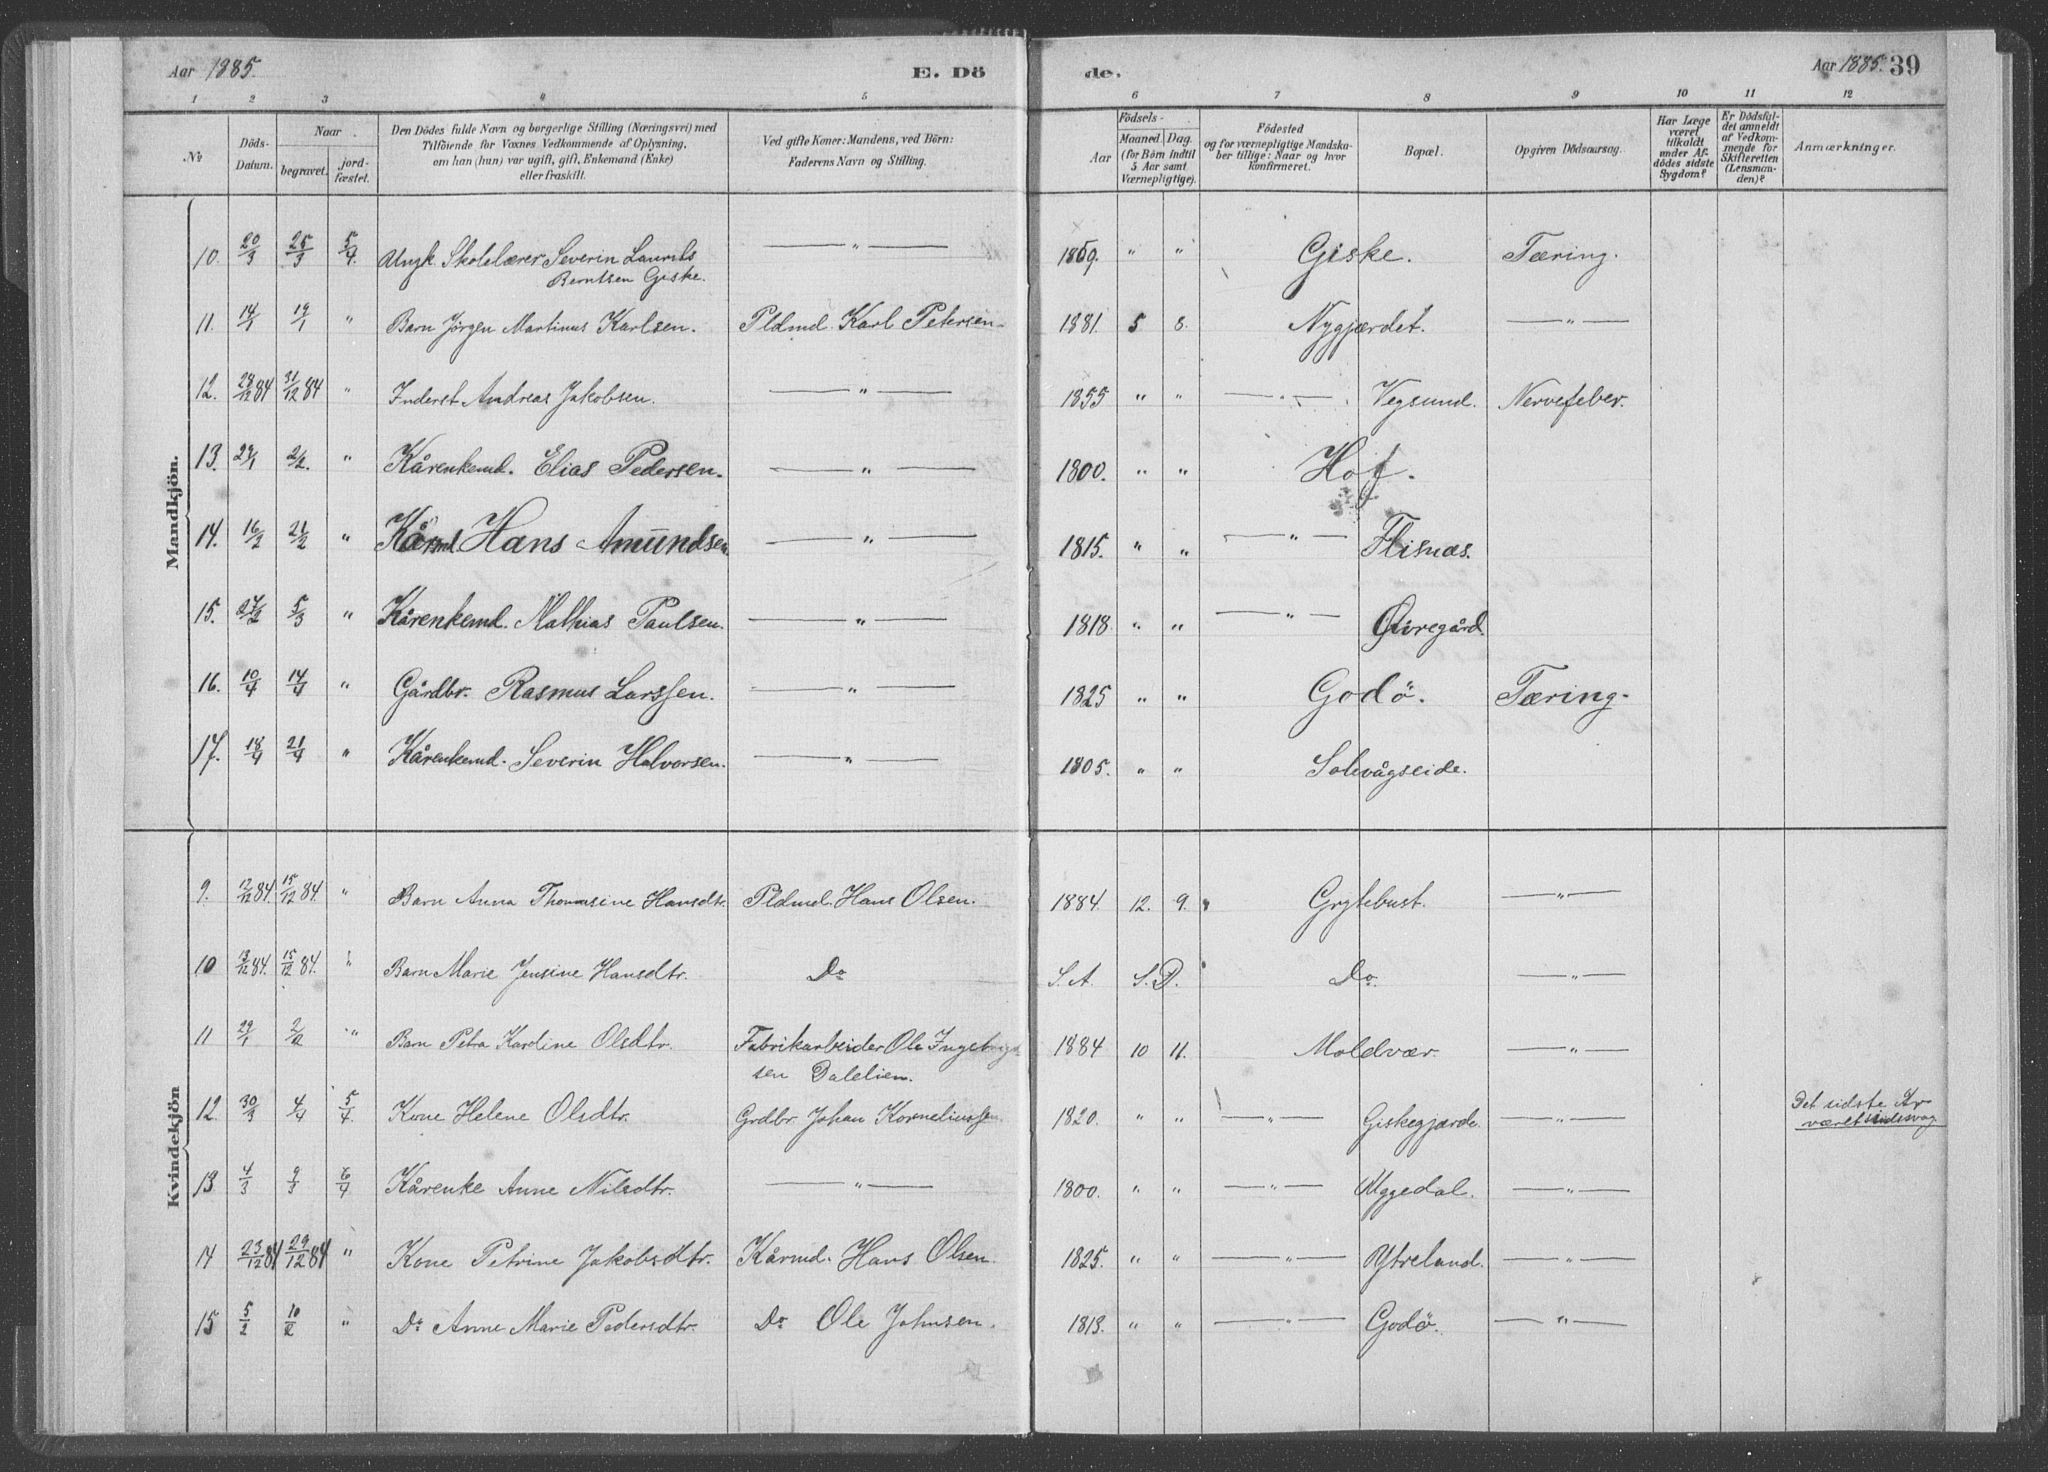 Aar 1885.
E. Dö
de.
Aar 1885. 39
1 2 3 4 5 6 7 8 9 10 11 12
No
Döds-Datum.
Naar
begravet.
jord-fæstet.
Den Dödes fulde Navn og borgerlige Stilling (Næringsvei) med
Tilföiende for Voxnes Vedkommende af Oplysning,
om han (hun) var ugift, gift, Enkemand (Enke)
eller fraskilt.
Ved gifte Koner: Mandens, ved Börn:
Faderens Navn og Stilling.
Födsels-
Aar
Maaned Dag.
(for Börn indtil
5 Aar samt
Værnepligtige).
Födested
og for værnepligtige Mandska-
ber tillige: Naar og hvor
konfirmeret.
Bopæl.
Opgiven Dödsaarsag.
Har Læge
været
tilkaldt
under Af-
dödes sidste
Sygdom?
Er Dödsfal-
det anmeldt
af Vedkom-
mende for
Skifteretten
(Lensman-
den)?
Anmærkninger.
Mandkjön.
10. 20/3 25/3 5/4. Ungk. Skolelærer Severin Laurits — " — 1869. " " Giske. Tæring.
Berntsen Giske.
11. 14/1 19/1 " Barn Jörgen Martinus Karlsen. Pldmd. Karl Petersen. 1881. 5 8. Nygjærdet. — " —
12. 28/12 84 31/12 84 " Inderst Andreas Jakobsen. — " — 1855 " " — " — Vegsund. Nervefeber.
13. 29/1 2/2. " Kårenkemd. Elias Pedersen. — " — 1800. " " Hof.
14. 16/2 21/2 " Kårmd. Hans Amundsen — " — 1815. " " — " — Flisnæs.
15. 27/2 5/3 " Kårenkemd. Mathias Paulsen. — " — 1818. " " — " — Øvregård.
16. 10/4 14/4 " Gårdbr. Rasmus Larssen. — " — 1825 " " Godö. Tæring.
17. 18/4 21/4 " Kårenkemd. Severin Halvorsen. — " — 1805. " " Solevågseide.
Kvindekjön
9. 12/12 84. 15/12 84. " Barn Anna Thomasine Hansdtr. Pldmd. Hans Olsen. 1884. 12. 9. Grytebust. — " —
10 13/12 84. 15/12 84. " Barn Marie Jensine Hansdtr. Do S. A. S. D. Do. — " —
11 29/1 2/2 " Barn Petra Karoline Olsdtr. Fabrikarbeider Ole Ingebrigt-
sen Dalelien. 1884 10 11. Moldvær. — " —
12. 30/3 4/4 5/4. Kone Helene Olsdtr. Grdbr. Johan Korneliussen 1820. " " — " — Giskegjærde. — " — Det sidste Ar
været sindsvag
13. 4/3 9/3 6/4 Kårenke Anne Nilsdtr. — " — 1800. " " — " — Uggedal. — " —
14 23/12 84 29/12 84 " Kone Petrine Jakobsdtr. Kårmd. Hans Olsen. 1825. " " — " — Ytreland. — " —
15 5/2 10/2 " Do Anne Marie Pedersdtr. Do Ole Johnsen. 1813. " " — " — Godö. — " —